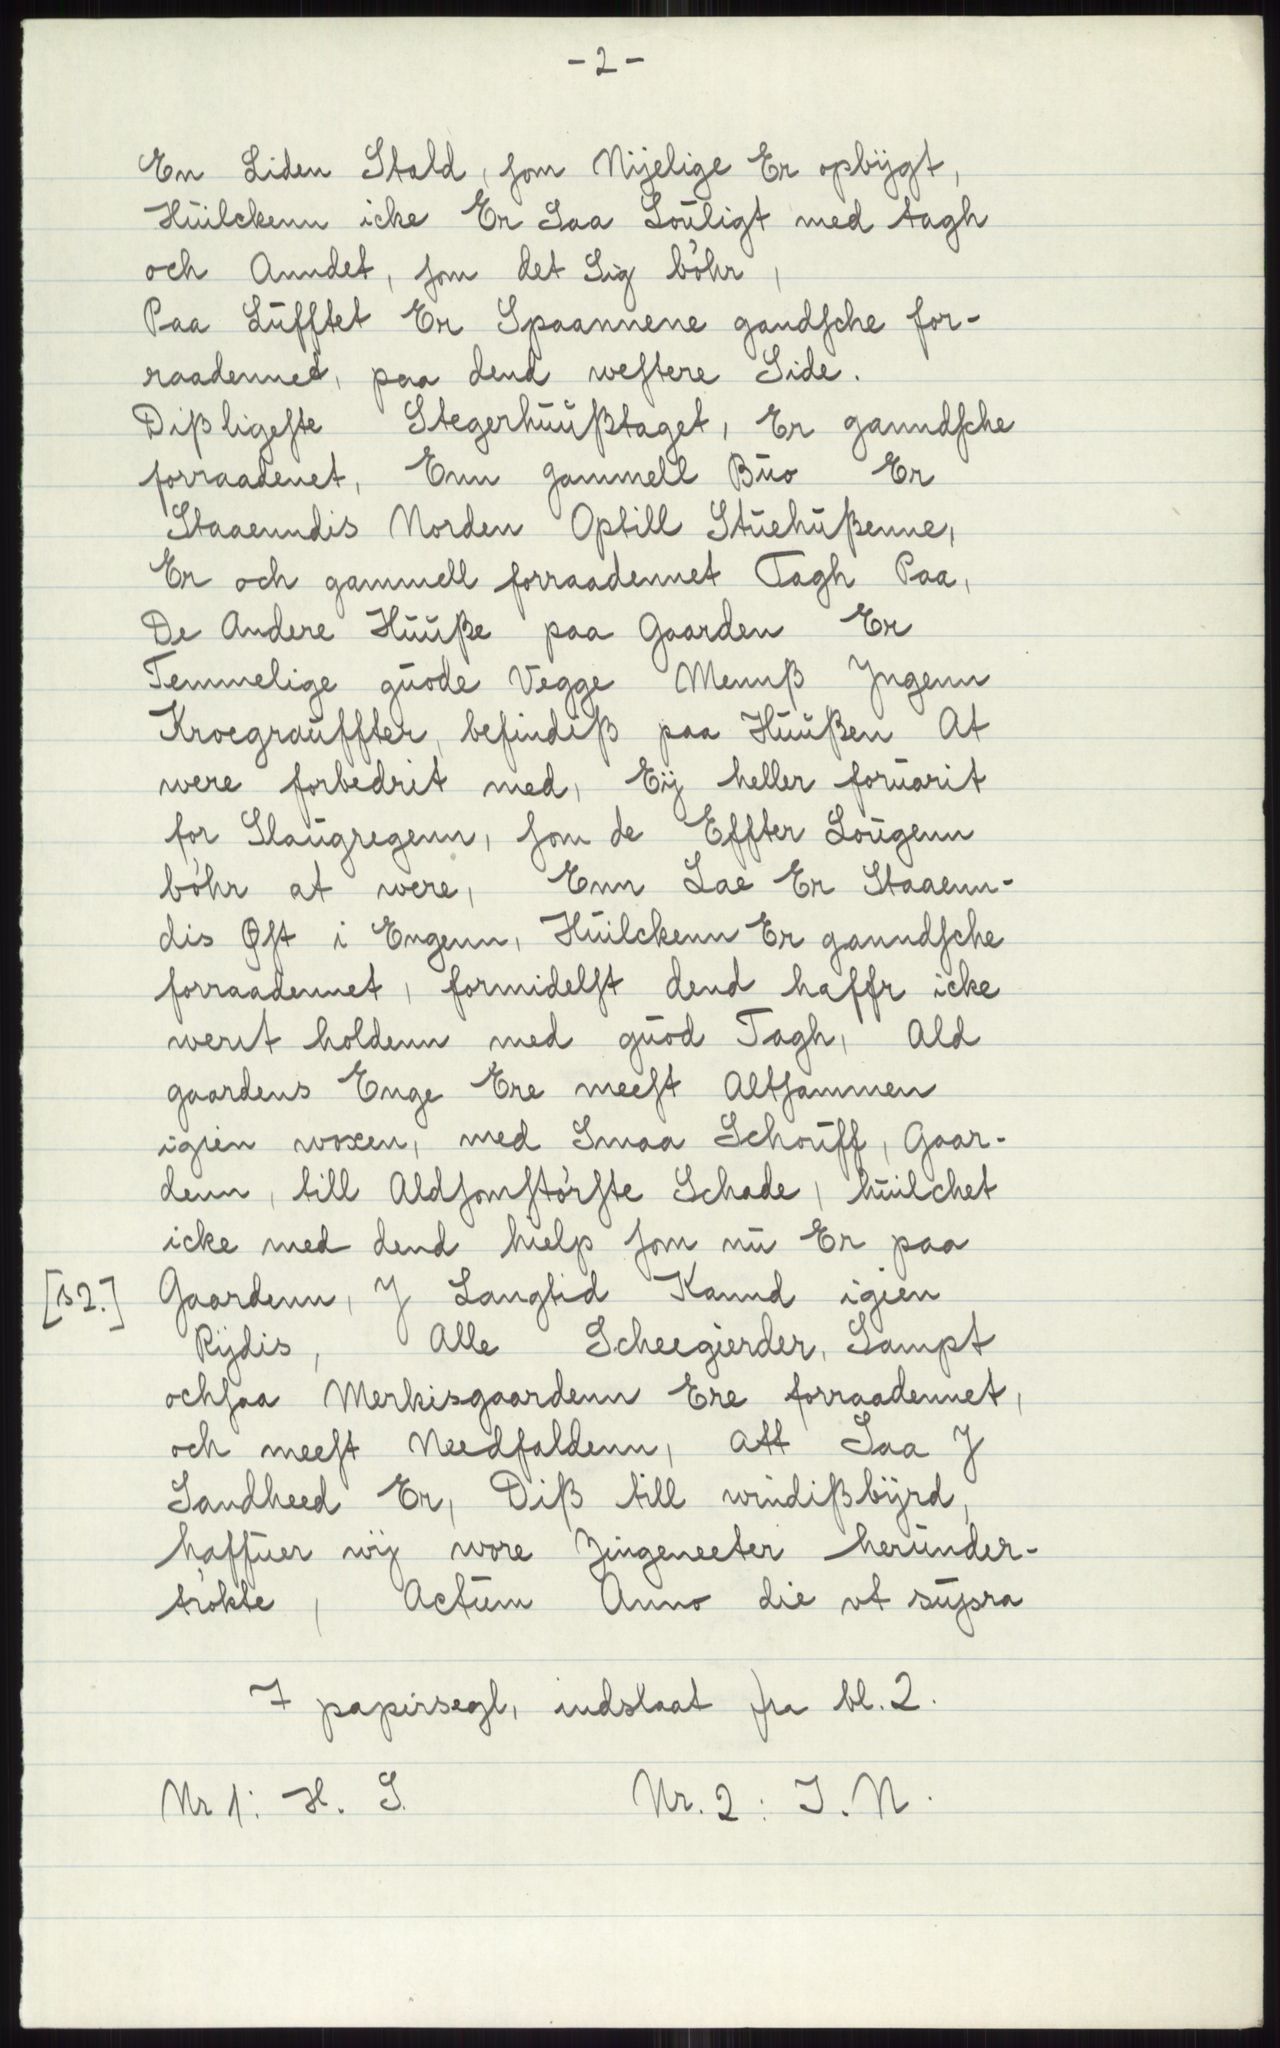 - 2 -
En Liden Stald, som Nijelige Er opbÿgt,
Huilckenn icke Er Saa Louligt med tagh
och Anndet, som det Sig bøhr,
Paa Lufftet Er Spaannene gandsche for-
raadenned, paa dend westere Side.
Dißligeste Stegerhuußtaget, Er ganndsche
forraadenet, Enn gammell Buo Er
Staaenndis Norden Optill Stuehußenne,
Er och gammell forraadennet Tagh Paa,
De Andere Huuße paa Gaarden Er
Temmelige guode Vegge Mennß Jngenn
Kroegrauffter, befindiß paa Huußen At
were forbedrit med, Eÿ heller foruarit
for Slaugregenn, som de Effter Lougenn
bøhr at were, Enn Lae Er Staaenn-
dis Øst i Engenn, Huilckenn Er ganndsche
forraadennet, formidelst dend haffr icke
werit holdenn med guod Tagh, Ald
gaardens Enge Ere meest Altsammen
igien woxen, med Smaa Schouff, Gaar-
denn, till Aldsomstørste Schade, huilchet
icke med dend hielp som nu Er paa
[s 2.] Gaardenn, J Langtid Kannd igien
Rÿdis, Alle Scheegierder, Sampt
ochsaa Merkisgaardenn Ere forraadennet,
och meest Needfaldenn, Att Saa J
Sandheed Er, Diß till windißbÿrd,
haffuer wÿ wore Zingeneeter herunder-
trøkte, Actum Anno die vt supra
7 papirsegl, indslaat fra bl. 2.
Nr 1: H. S. Nr. 2: J. N.